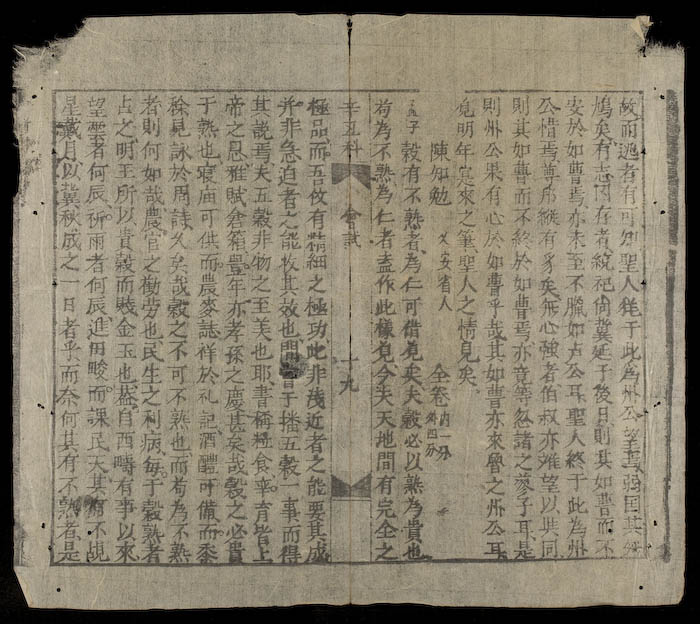 故而逃者有可如聖人筆于此為州公望焉弱国其
鳩矣有志因存者統祀尙冀延于後日則其如曹而不
安於如曹焉亦未至不臘如卢公耳聖人終于此為州
公惜焉尊邦縱有豸矣無心強者伯叔亦难望以共同
則其如曹而不終於如曹焉亦竟等忽諸之蓼子耳是
則州公果有心於如曹乎哉其如曹亦來魯之州公耳
見明年寔來之筆聖人之情見矣
陳如勉 乂安省人 全卷 內一分 外四分
孟子 穀有不熟者為仁可借見矣夫穀必以熟為貴也
茍為不熟為仁者盍作此樣見今夫天地間有完全之
辛丑科 會試 十九
極品而吾伩有精細之極功此非浅近者之能要其成
并非急迫者之能收其效也間嘗于播五穀一事而得
其說焉夫五穀非物之至美也耶書稱極食辛育皆上
帝之恩雅賦倉箱豊年亦孝孫之慶甚矣哉穀之必貴
于熟也寝庙可供而農麥誌祥於礼記酒醴可備而黍
稌見詠於周詩久矣哉穀之不可不熟也而茍為不熟
者則何如哉農官之勸勞也民生之利病每于穀熟者
占之明王所以貴穀而賤金玉也盖自西疇有事以來
望雲者何辰祈雨者何辰進田畯而課民夫其有不規
星戴月以冀秋成之一日者乎而奈何其有不熟者是